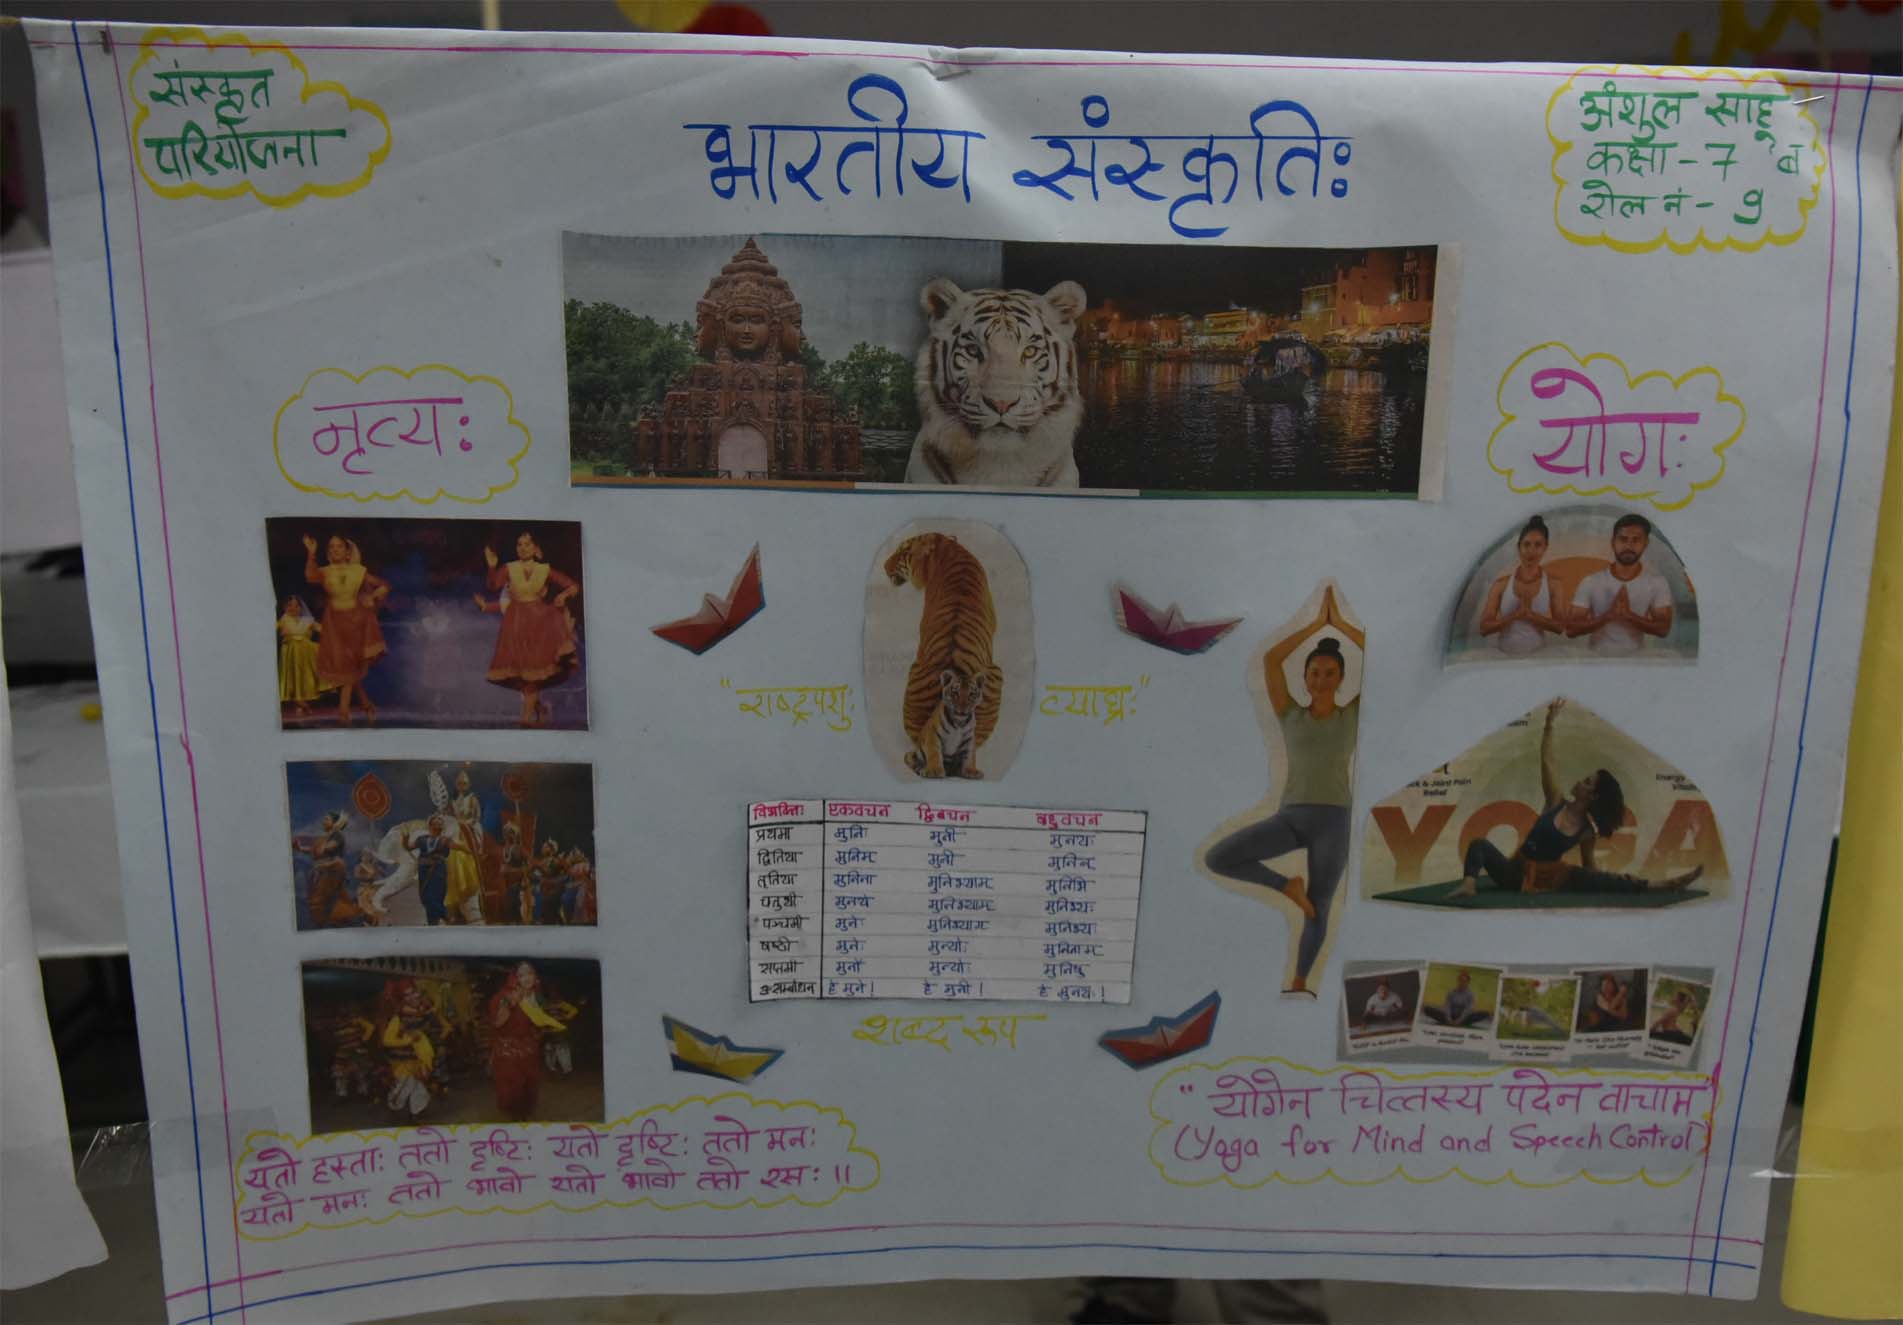 संस्कृत
परियोजना
भारतीय संस्कृतिः
अंशुल साहू
कक्षा - 7 ब
रोल नं - 9
नृत्यः
योगः
"राष्ट्रपशुः व्याघ्रः"
विभक्तिः एकवचन द्विबचन बहुवचन
प्रथमा मुनिः मुनी मुनयः
द्वितिया मुनिम् मुनी मुनिन्
तृतिया मुनिना मुनिभ्याम् मुनिभि
चतुर्थी मुनये मुनिभ्याम् मुनिभ्यः
पञ्चमी मुनेः मुनिभ्याम मुनिभ्यः
षष्ठी मुनेः मुन्योः मुनिनाम्
सप्तमी मुनौ मुन्योः मुनिषु
सम्बोधन हे मुने! हे मुनी! हे मुनयः!
शब्द रूप
& Joint Pain
Relief
Energy
YOGA
यतो हस्ताः ततो दृष्टिः यतो दृष्टिः ततो मनः
यतो मनः ततो भावो यतो भावो ततो रसः॥
"योगेन चित्तस्य पदेन वाचाम"
(Yoga for Mind and Speech Control)